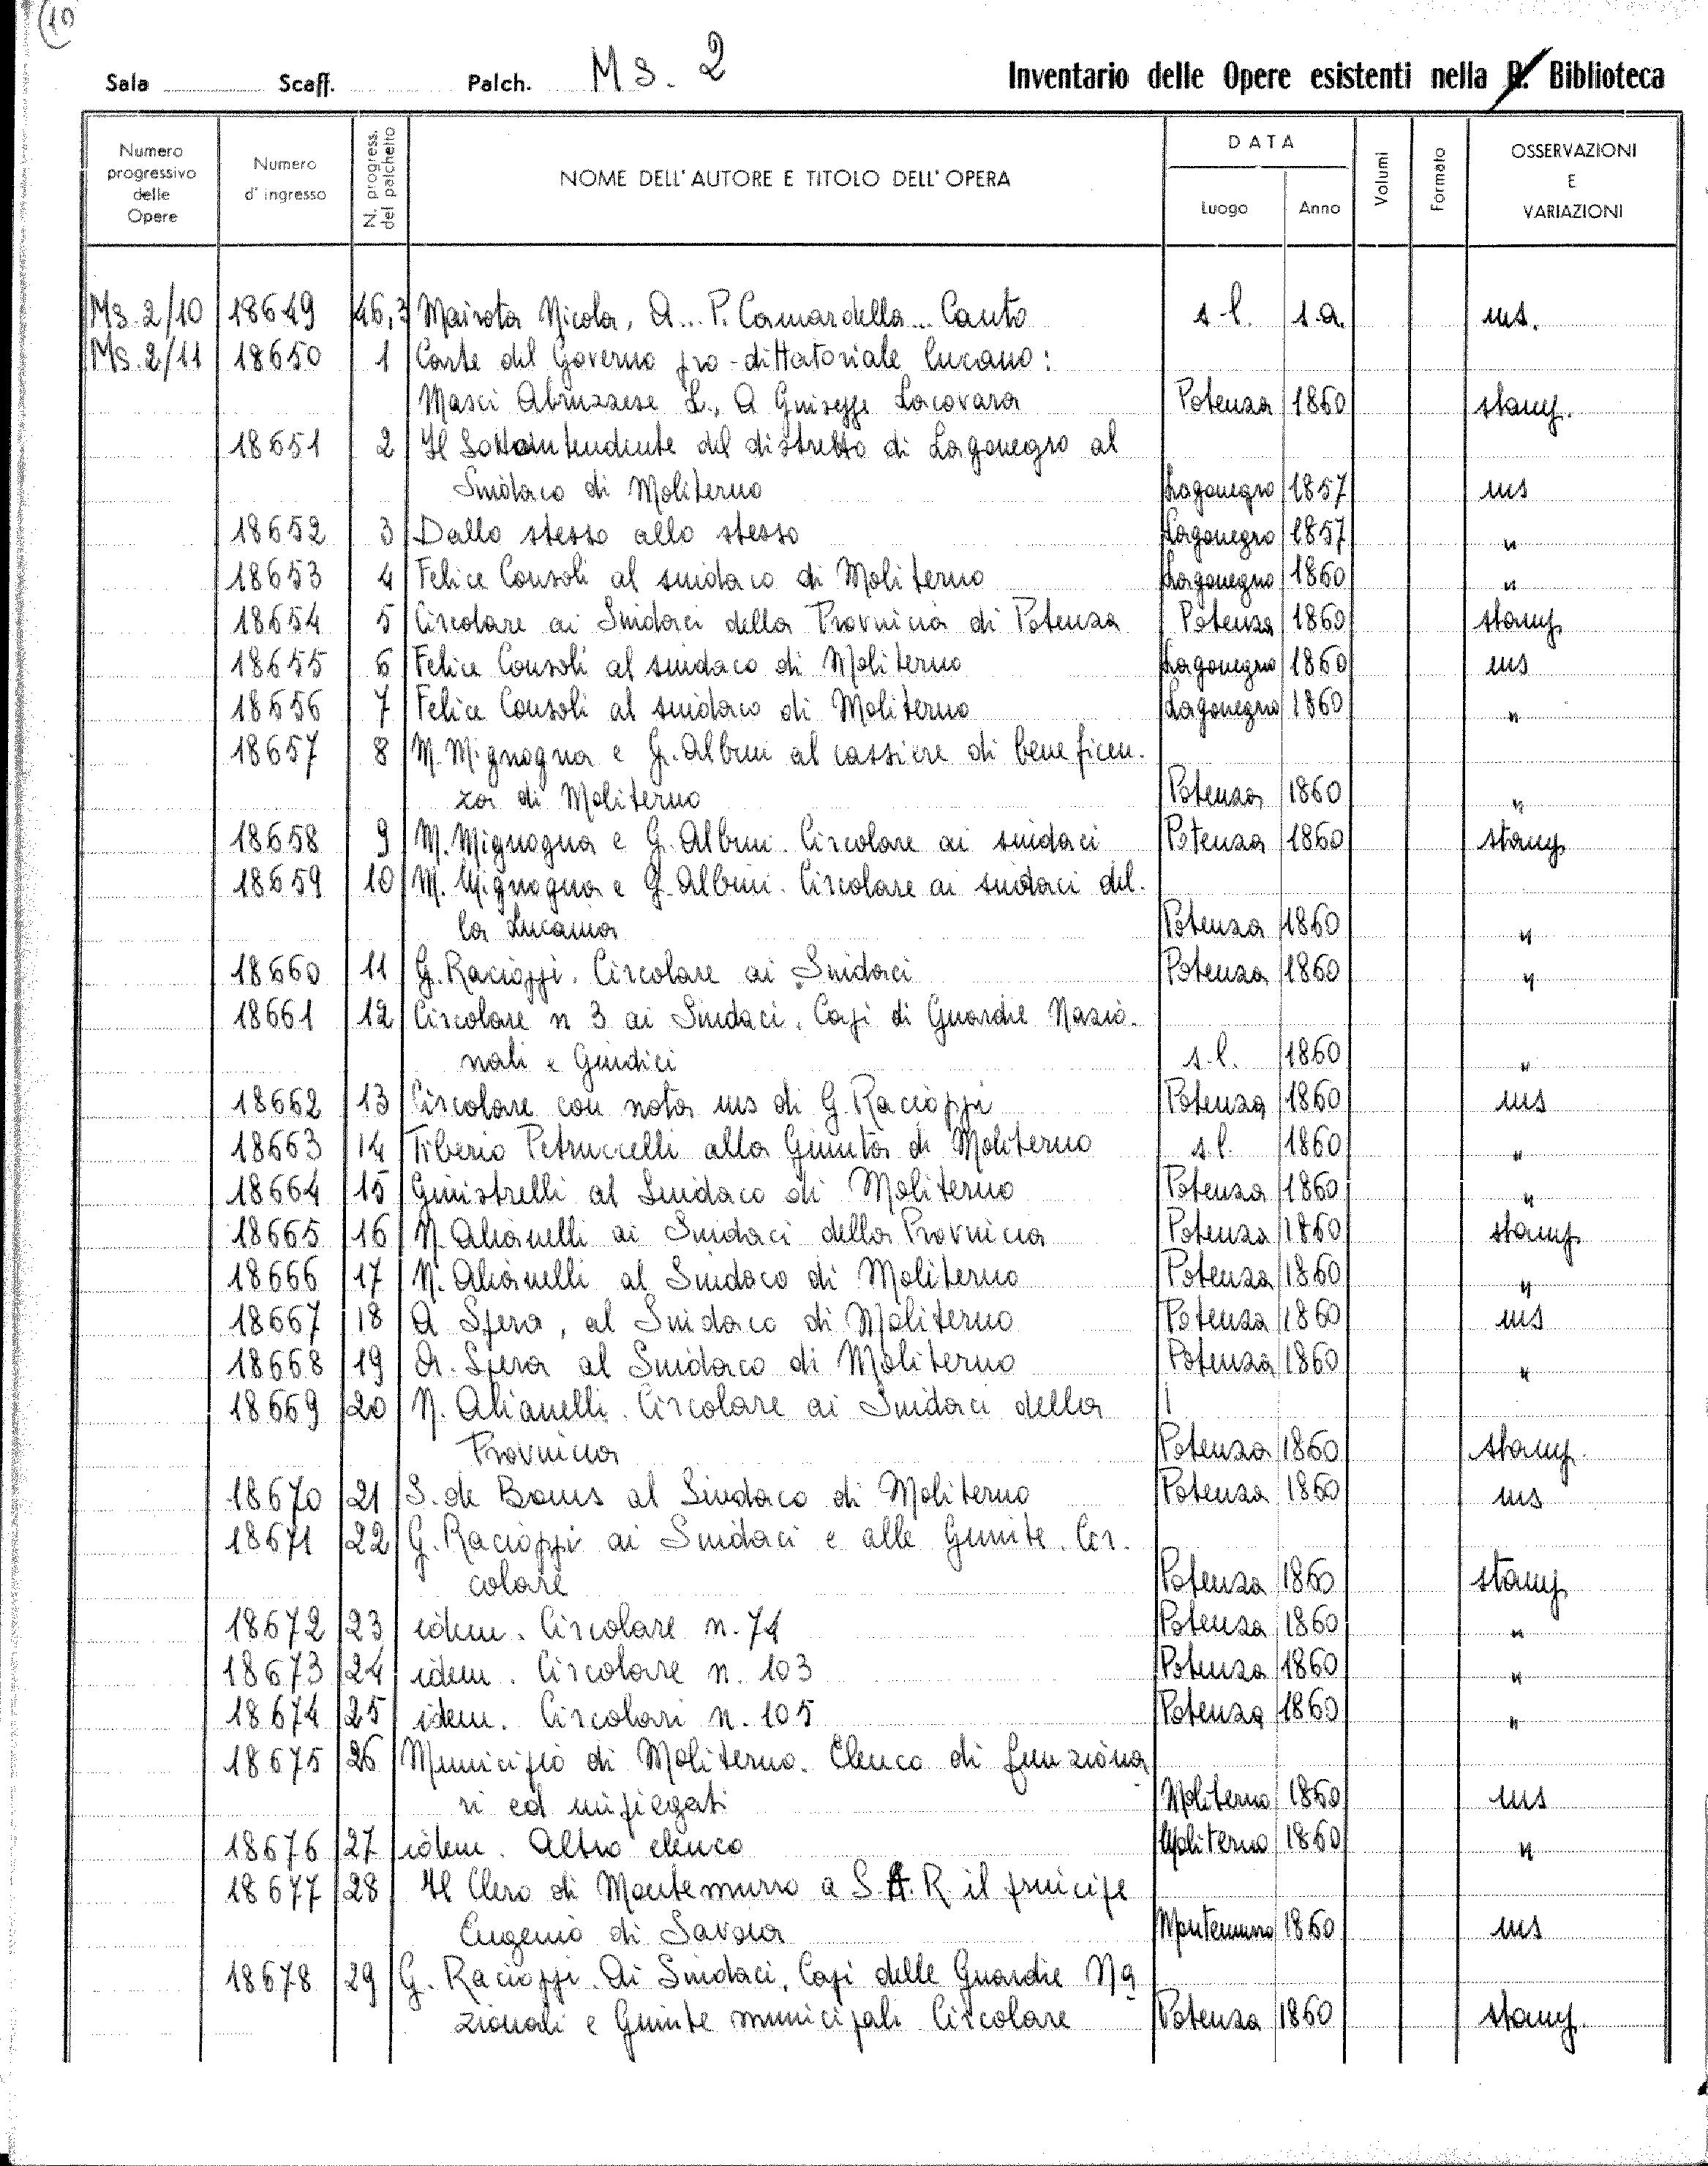 (10
Sala Scaff. Palch. Ms. 2 Inventario delle Opere esistenti nella R. Biblioteca
Numero progressivo delle Opere Numero d' ingresso N. progress. del palchetto NOME DELL' AUTORE E TITOLO DELL' OPERA DATA Luogo Anno Volumi Formato OSSERVAZIONI E VARIAZIONI
Ms. 2/10 18649 46,3 Mairota Nicola, A... P. Camardella... Canto s.l. s.a. ms.
Ms. 2/11 18650 1 Carte del Governo pro-dittatoriale lucano:
Masci Abruzzese L., A Giuseppe Lacovara Potenza 1860 stamp.
18651 2 Il Sottointendente del distretto di Lagonegro al
Sindaco di Moliterno Lagonegro 1857 ms
18652 3 Dallo stesso allo stesso Lagonegro 1857 "
18653 4 Felice Consoli al sindaco di Moliterno Lagonegro 1860 "
18654 5 Circolare ai Sindaci della Provincia di Potenza Potenza 1860 stamp.
18655 6 Felice Consoli al sindaco di Moliterno Lagonegro 1860 ms
18656 7 Felice Consoli al sindaco di Moliterno Lagonegro 1860 "
18657 8 M. Mignogna e G. Albini al cassiere di beneficen-
za di Moliterno Potenza 1860 "
18658 9 M. Mignogna e G. Albini. Circolare ai sindaci Potenza 1860 stamp.
18659 10 M. Mignogna e G. Albini. Circolare ai sindaci del-
la Lucania Potenza 1860 "
18660 11 G. Racioppi. Circolare ai Sindaci Potenza 1860 "
18661 12 Circolare n 3 ai Sindaci, Capi di Guardie Nazio-
nali e Giudici s.l. 1860 "
18662 13 Circolare con nota ms di G. Racioppi Potenza 1860 ms
18663 14 Tiberio Petruccelli alla Giunta di Moliterno s.l. 1860 "
18664 15 Ginistrelli al Sindaco di Moliterno Potenza 1860 "
18665 16 N. Alianelli ai Sindaci della Provincia Potenza 1860 stamp.
18666 17 N. Alianelli al Sindaco di Moliterno Potenza 1860 "
18667 18 A Spera, al Sindaco di Moliterno Potenza 1860 ms
18668 19 A. Spera al Sindaco di Moliterno Potenza 1860 "
18669 20 N. Alianelli. Circolare ai Sindaci della
Provincia Potenza 1860 stamp.
18670 21 S. de Bonis al Sindaco di Moliterno Potenza 1860 ms
18671 22 G. Racioppi ai Sindaci e alle Giunte. Cir-
colare Potenza 1860 stamp.
18672 23 idem. Circolare n. 74 Potenza 1860 "
18673 24 idem. Circolare n. 103 Potenza 1860 "
18674 25 idem. Circolari n. 105 Potenza 1860 "
18675 26 Municipio di Moliterno. Elenco di funziona
ri ed impiegati Moliterno 1860 ms
18676 27 idem. Altro elenco Moliterno 1860 "
18677 28 Il Clero di Montemurro a S.A.R il principe
Eugenio di Savoia Montemurro 1860 ms
18678 29 G. Racioppi. Ai Sindaci, Capi delle Guardie Na
zionali e Giunte municipali Circolare Potenza 1860 stamp.